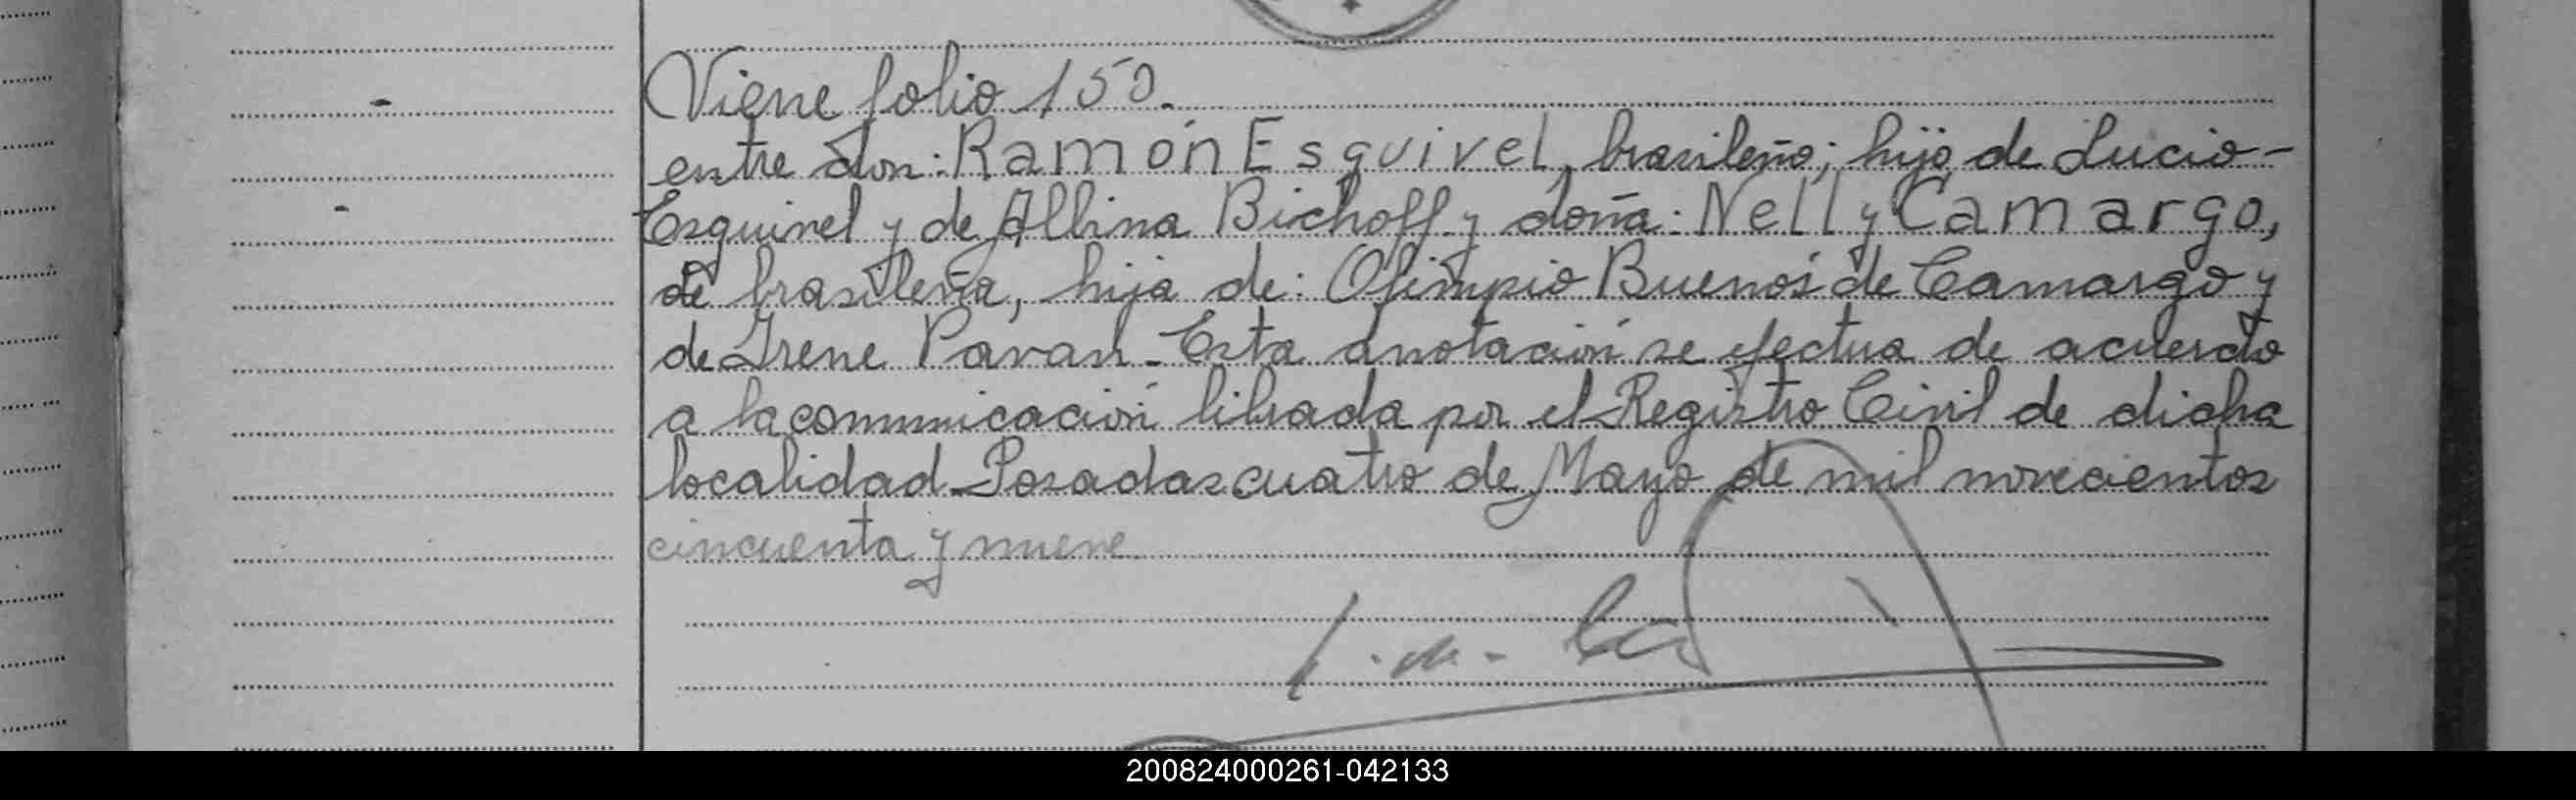 Viene folio 150.
entre don: Ramón Esquivel, brasileño; hijo de Lucio-
Esquivel y de Albina Bichoff y doña: Nelly Camargo,
de brasileña, hija de: Olimpio Buenos de Camargo y
de Irene Pavan. Esta anotación se efectua de acuerdo
a la comunicación librada por el Registro Civil de dicha
localidad. Posadas cuatro de Mayo de mil novecientos
cincuenta y nueve
200824000261-042133